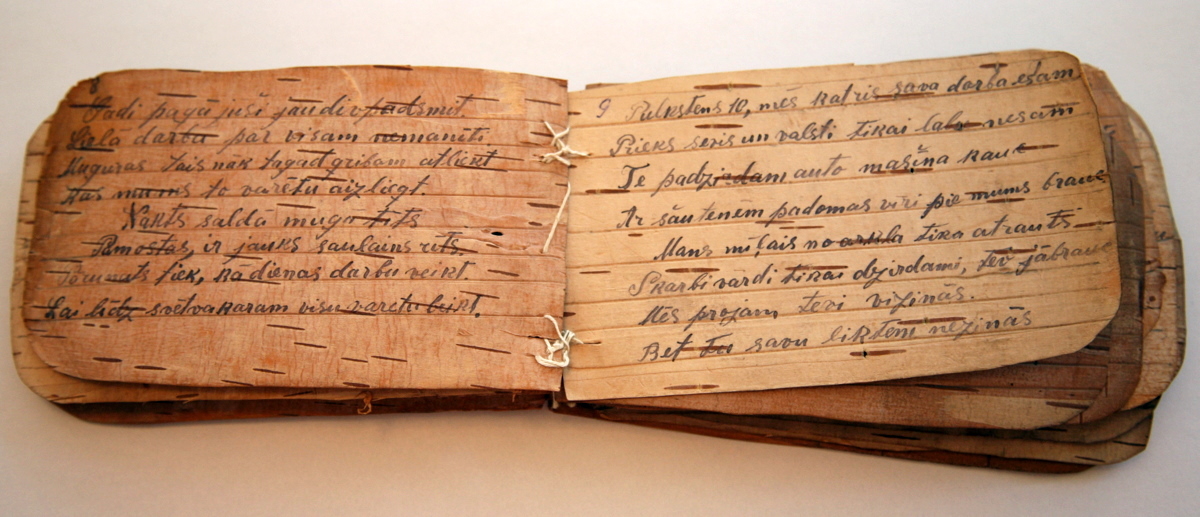 8
Gadi pagājuši jau divpadsmit.
Lielā darbu par visam nemanīti.
Muguras tais nāk tagad gribam atliekt
Kas mums to varētu aizliegt
Nakts saldā miegā tīts
Pamostas, ir jauks saulains rīts,
tiek, kādienas darbu veikt.
Lai līdz svētvakaram visu varētu beikt.
9 Pulkstens 10, mēs katris sava darba esam
Prieks sevis un valsti tikai labu nesam
Te padzirdam auto mašīna kauc
Ar šautenēm padomas vīri pie mums brauc
Mans mīļais no arkla tika atrauts
Skarbi vardi tikai dzirdami, tev jābrauc
Mēs projam tevi vizinās.
Bet tu savu likteni nezinās